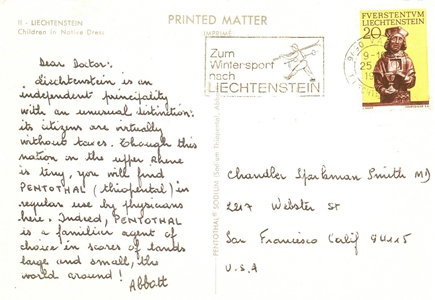 II - LIECHTENSTEIN
Children in Native Dress
PRINTED MATTER
IMPRIMÉ
Zum
Wintersport
nach
LIECHTENSTEIN
FVERSTENTVM
LIECHTENSTEIN
20
Dear Doctor:
Liechtenstein is an
independent principality
with an unusual distinction:
its citizens are virtually
without taxes. Though this
nation on the upper Rhine
is tiny, you will find
PENTOTHAL (thiopental) in
regular use by physicians
here. Indeed, PENTOTHAL
is a familiar agent of
choice in scores of lands
large and small, the
world around!
Abbott
PENTOTHAL® SODIUM (Sodium Thiopental, Abbott)
Chandler Sparkman Smith MD
2217 Webster St
San Francisco Calif 94115
U.S.A